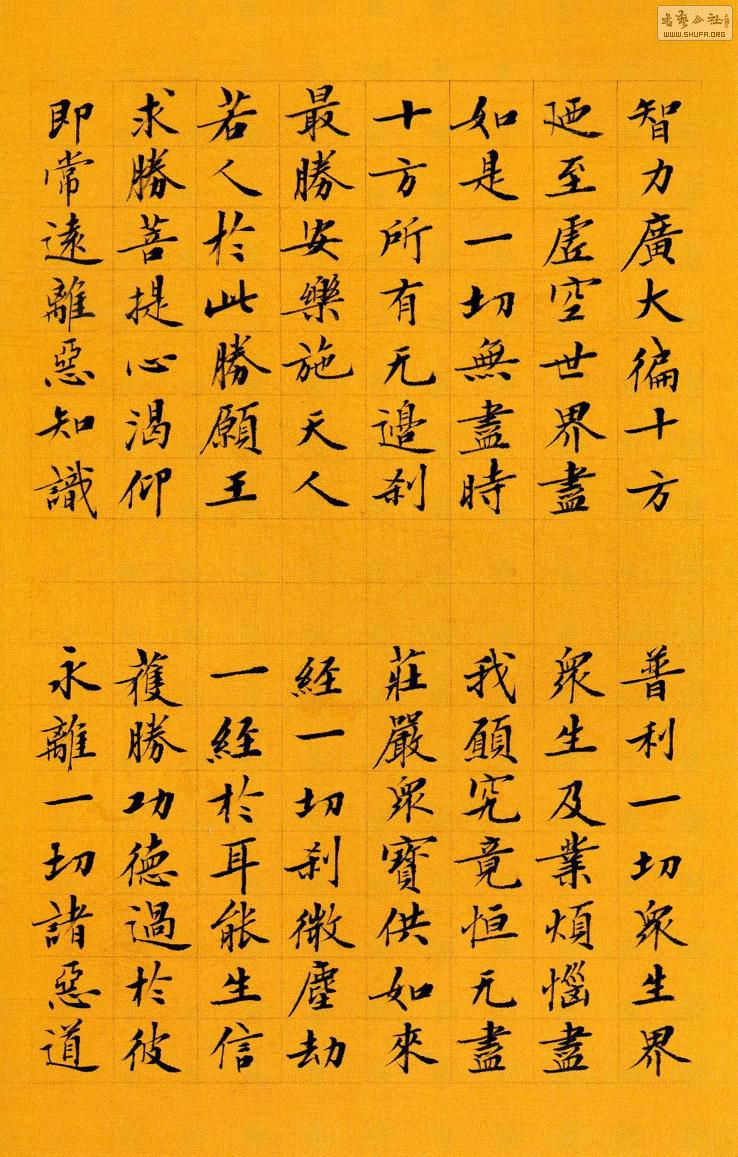 智力廣大徧十方
普利一切衆生界
廼至虛空世界盡
衆生及業煩惱盡
如是一切無盡時
我願究竟恒无盡
十方所有无邊刹
莊嚴衆寶供如來
最勝安樂施天人
經一切刹微塵劫
若人於此勝願王
一經於耳能生信
求勝菩提心渴仰
獲勝功德過於彼
即常遠離惡知識
永離一切諸惡道
書藝公社
WWW.SHUFA.ORG